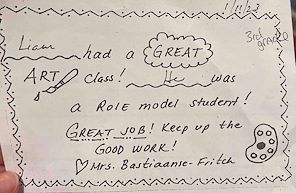 1/11/22
3rd grade
Liam had a GREAT
ART Class! He was
a ROLE model student!
GREAT JOB! Keep up the
GOOD WORK!
Mrs. Bastiaanse-Fritch